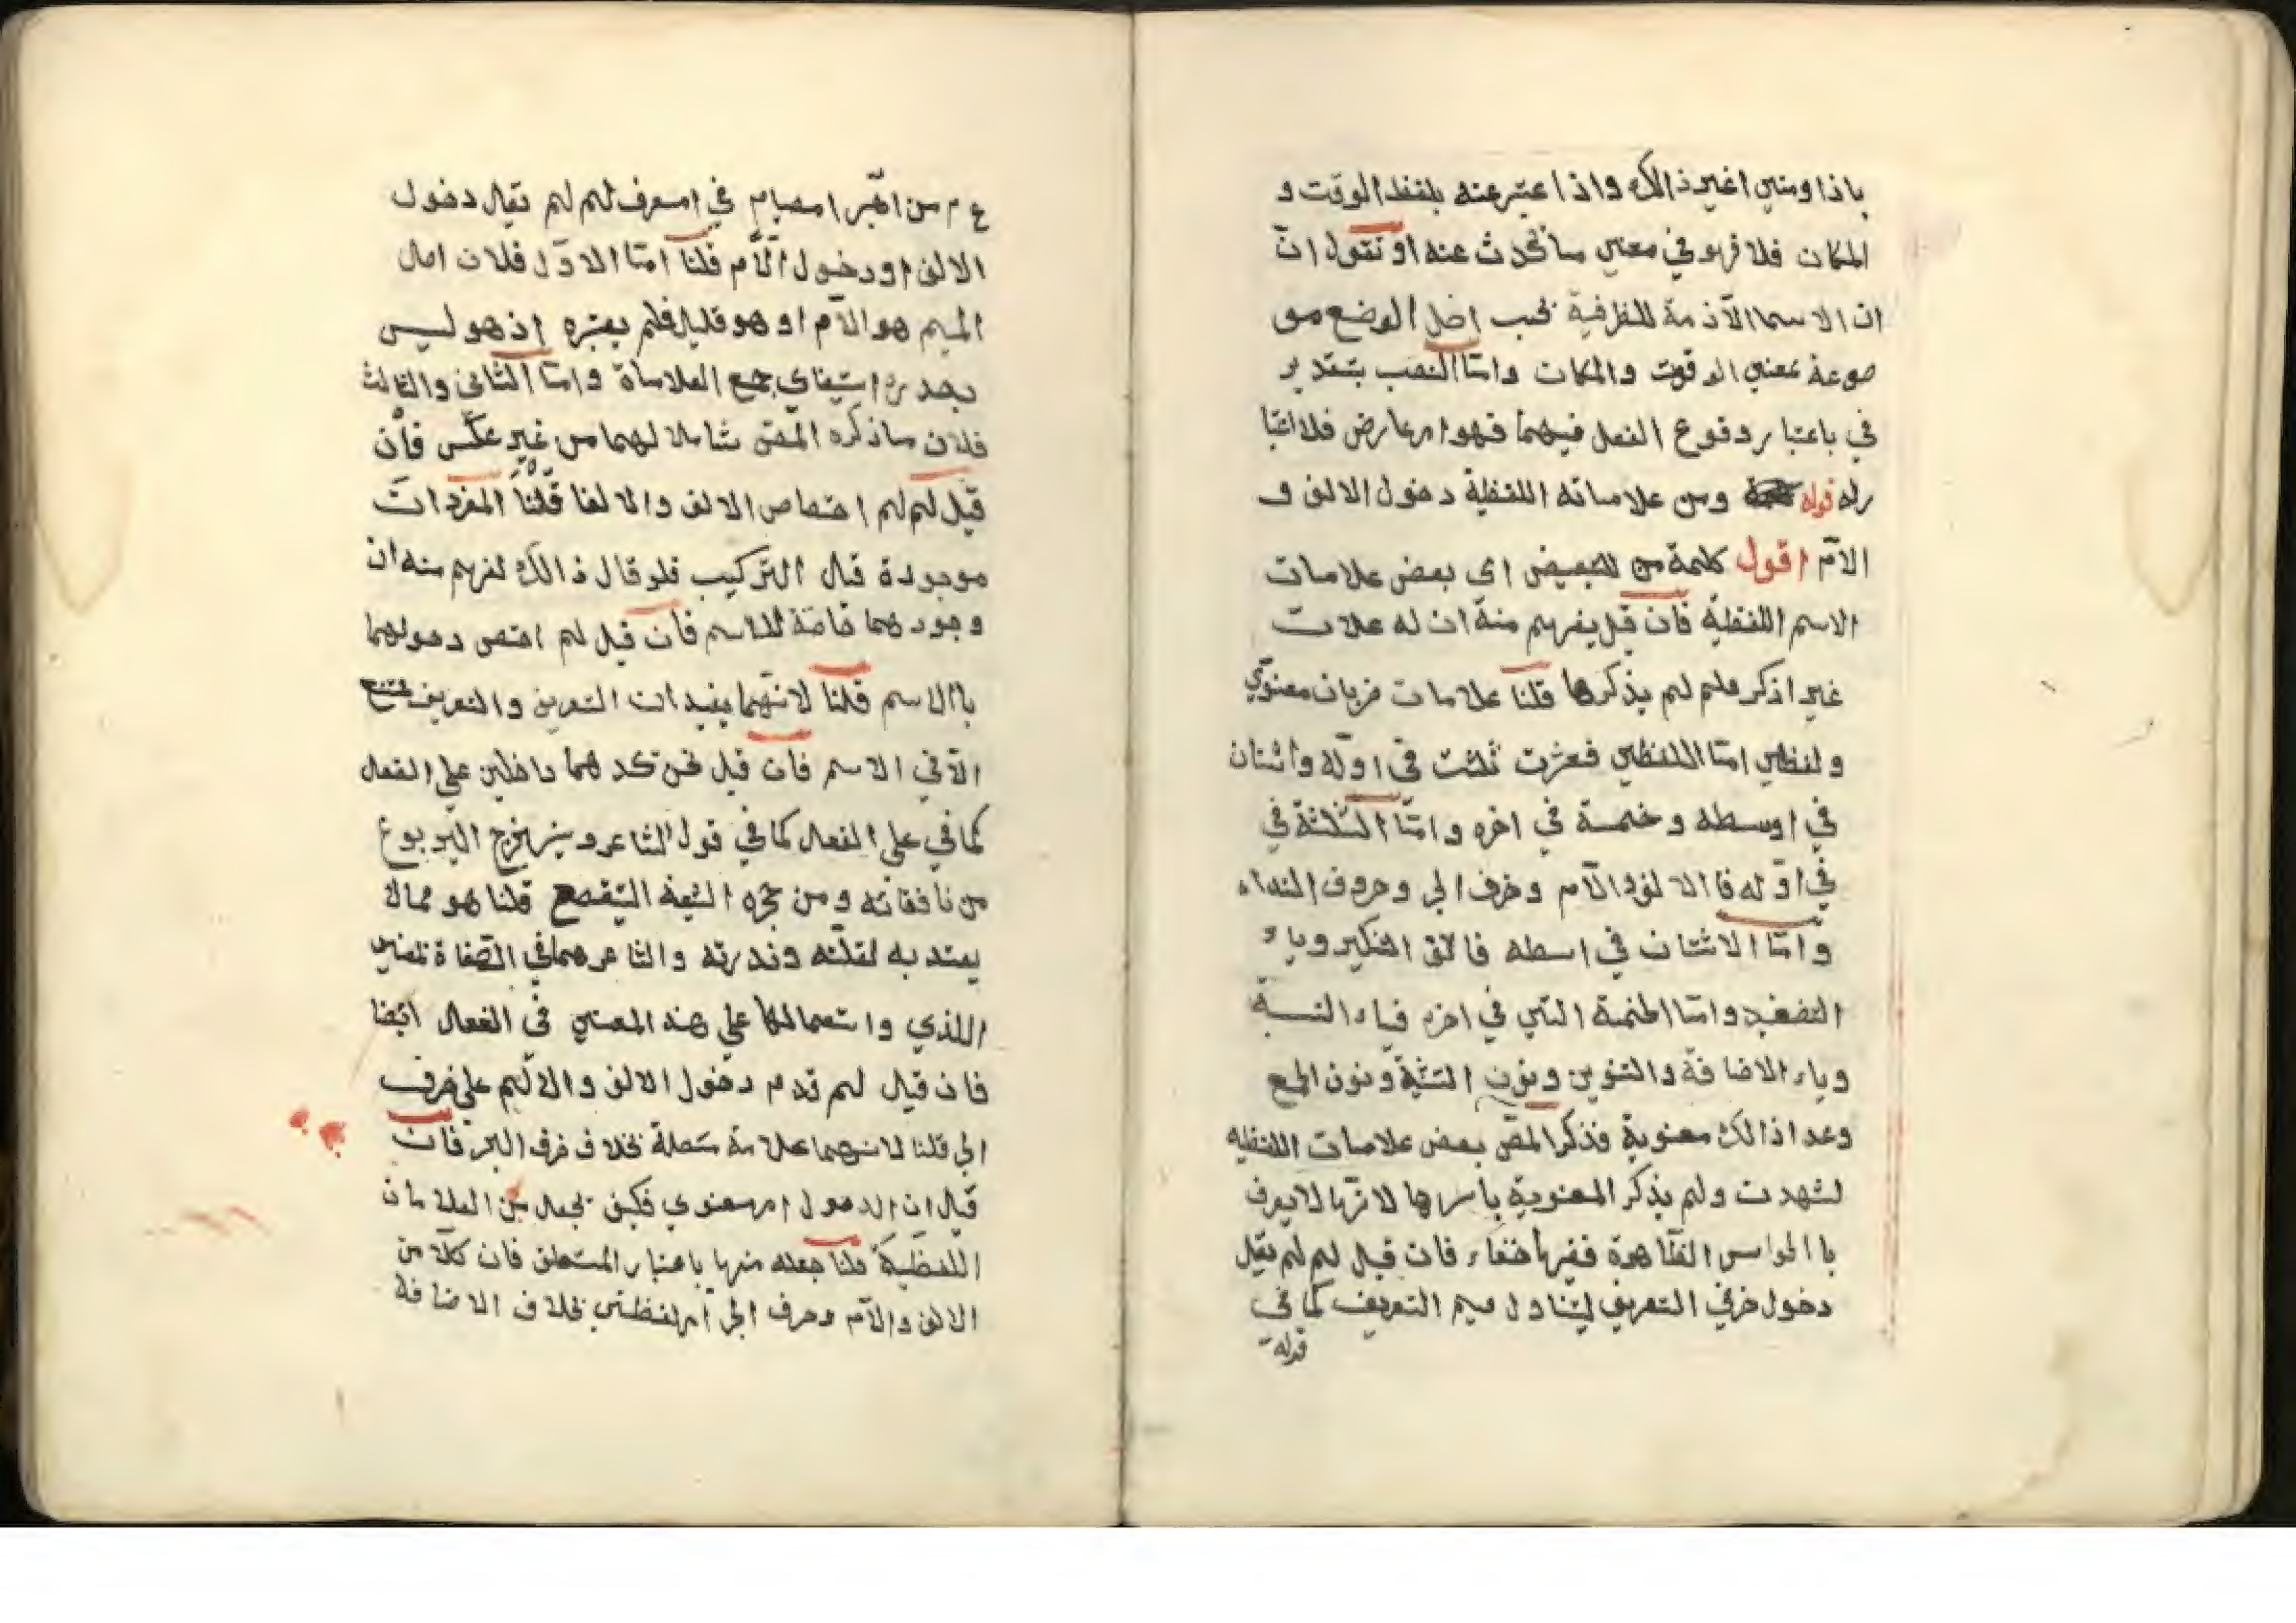 باذا ومتي اغير ذالك واذا عتبر عنه بلفظ الوقت و
المكان فلا فهو في معني ما نحدث عنه او نقول ان
ان الاسما الآذمة للظرفية بحسب اصل الوضع مو
ضوعة بمعني الوقوت والمكان وامّا النصب بتقدير
في باعتبار وقوع الفعل فيهما فهو امر عارض فلا اعتبا
ر له قوله ومن علاماته اللفظية دخول الالف و
الآم اقول كلمة من للتبعيض اي بعض علامات
الاسم اللفظية فان قيل يفهم منه ان له علامت
غير اذكر فلم لم يذكرها قلنا علامات ضربان معنوي
ولفظي امّا اللفظي فعشرت ثلثت في اوّله واثنان
في اوسطه وخمسة في اخره وامّا الثلثة في
في اوّله فا الالف والآم وحرف الجر وحروف النداء
وامّا الاثنان في اسطه فالف التكير وياء
التصغير وامّا الخمسة التي في اخره فياء النسبة
وياء الاضافة والتنوين ونون التثنية ونون الجمع
وعدا ذالك معنوية فذكر المص بعض علامات اللفظيه
لشهدت ولم يذكر المعنوية باسرها لانّها لا يعرف
با الحواس الظاهرة ففيها خفاء فان قيل لم لم يقل
دخول حرفي التعريف ليتناول ميم التعريف كما في
قوله
ع م من امبر امصيام في امسفر لم لم يقال دخول
الالف او دخول الآم قلنا امّا الاوّل فلان امال
الميم هو الآم او هو قليل فلم يعتبره اذ هو ليس
بصدد استيفاي جمع العلاماة وامّا الثاني والثالث
فلان ماذكره المص شاملا لهما من غير عكس فأن
قيل لم لم اختصاص الالف والا لفا قلنا المفردات
موجودة قبل التركيب فلو قال ذالك لفهم منه ان
وجودهما خاصّة للاسم فأن قيل لم اختص دخولهما
باالاسم قلنا لانّهما يفيدان التعرين والتعريف
الآ في الاسم فان قيل نحن نجد هما داخلين علي الفعل
كما في علي الفعل كما في قول الشاعر ويستخرج اليربوع
من نافقائه ومن جحره الشيخة اليتقصع قلنا هو ممالا
يعتد به لقلّته وندرته والشاعر هما في الصفاة بمعني
اللذي واستعمالها علي هذه المعني في الفعل ايضا
فان قيل لم قدم دخول الالف والالّم علي حرف
الجر قلنا لانهما علامة متصلة بخلاف حرف الجر فان
قيل ان الدخول امر معنوي فكيف تجعل من العلامات
اللفظيّة قلنا جعله منها باعتبار المتعلق فان كلّا من
الالف والآم وحرف الجر امر لفظي بخلاف الاضافة